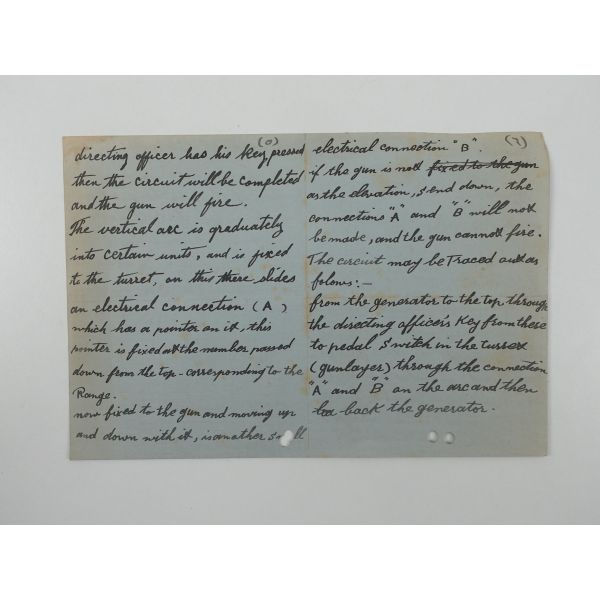 (6)
directing officer has his Key pressed
then the circuit will be completed
and the gun will fire.
The vertical arc is graduately
into certain units, and is fixed
to the turret, on this there slides
an electrical connection (A)
which has a pointer on it, this
pointer is fixed at the number passed
down from the top - corresponding to the
Range.
now fixed to the gun and moving up
and down with it, is another small
(7)
electrical connection "B".
if the gun is not fixed to the gun
as the elevation, send down, the
connections "A" and "B" will not
be made, and the gun cannot fire.
The circuit may be Traced out as
folows:—
from the generator to the top through
the directing officer's Key from these
to pedal switch in the turret
(gunlayer) through the connection
"A" and "B" on the arc and then
back the generator.